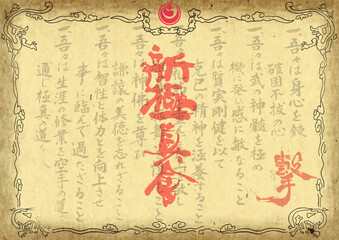 一吾々は身心を錬
確固不抜の心
一吾々は武の神髄を極め
機に発し感に敏なること
一吾々は質実剛健を以て
克己の精神を涵養すること
一吾々は
一吾々は神佛を尊び
謙譲の美徳を忘れざること
一吾々は智性と体力とを向上させ
事に臨んで過たざること
一吾々は生涯の修業を空手の道に
通じ極真の道
新極真会
撃